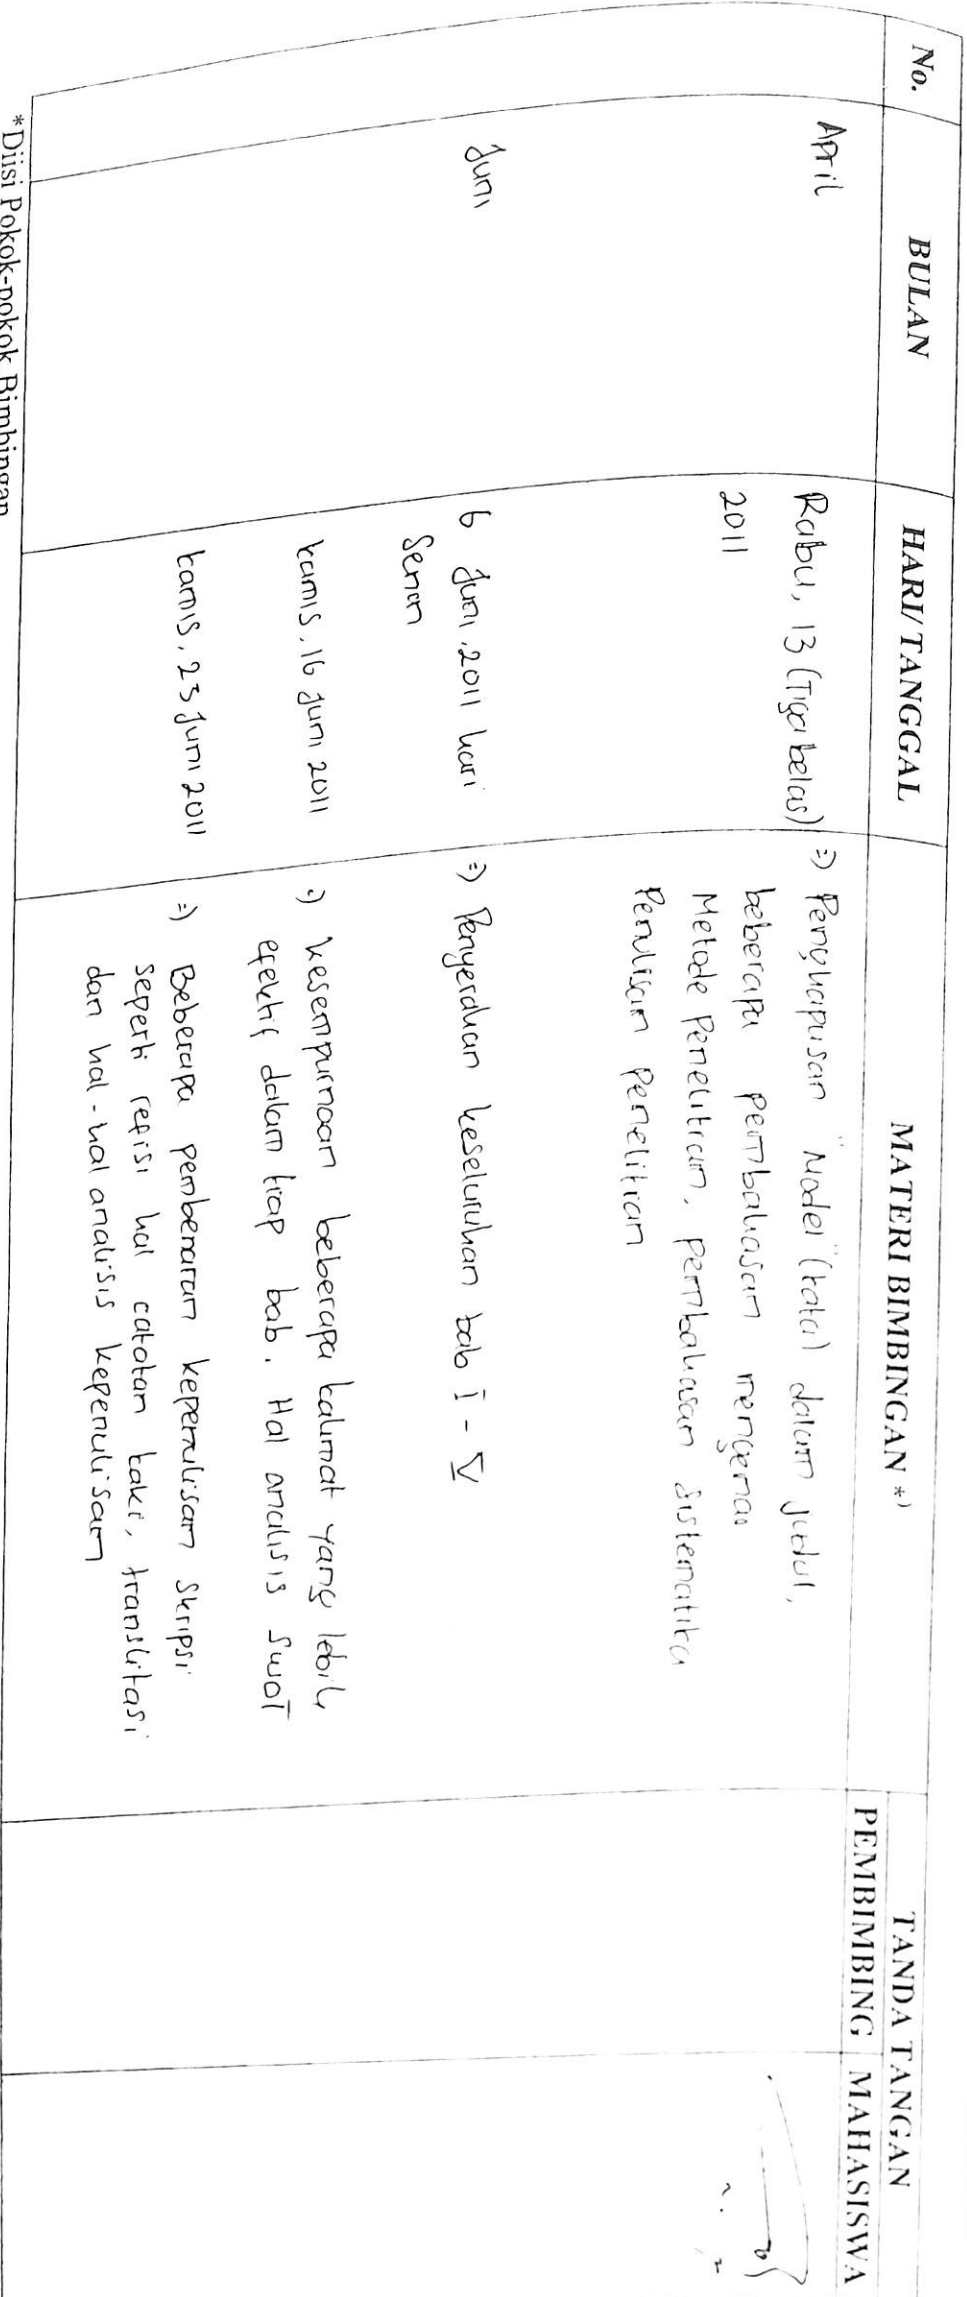 No.
BULAN
HARI/TANGGAL
MATERI BIMBINGAN *)
TANDA TANGAN
PEMBIMBING
MAHASISWA
April
Rabu, 13 (Tiga belas)
2011
=) Penghapusan "Model" (kata) dalam judul,
beberapa pembahasan mengenai
Metode Penelitian, pembahasan sistematika
Penulisan Penelitian
Juni
6 Juni, 2011 hari
Senin
=) Penyerahan keseluruhan bab I - V
kamis, 16 Juni 2011
=) kesempurnaan beberapa kalimat yang lebih
efektif dalam tiap bab. Hal analisis SWOT
kamis, 23 Juni 2011
=) Beberapa pembenaran kepenulisan skripsi
seperti refisi hal catatan kaki, translitasi
dan hal-hal analisis kepenulisan
*Diisi Pokok-pokok Bimbingan